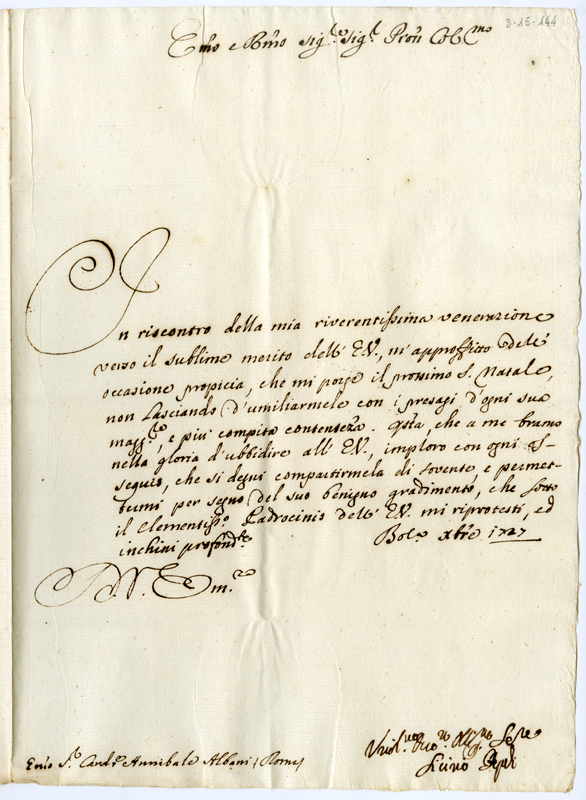 3-15-144
Emo e Rmo Sig.r Sig.r Pron Colmo
In riscontro della mia riverentissima venerazione
verso il sublime merito dell' E.V., m'approffitto dell'
occasione propicia, che mi porge il prossimo S. Natale,
non lasciando d'umiliarmele con i presagi d'ogni sua
magg.re, e più compita contentezza. Qsta, che a me bramo
nella gloria d'ubbidire all' E.V., imploro con ogni os-
sequio, che si degni compartirmela di sovente, e permet-
termi per segno del suo benigno gradimento, che sotto
il Clementiss.o Padrocinio dell' E.V. mi riprotesti, ed
inchini profond.te
Bola Xbre 1727
D.V. Em.za
Umil.mo Dvo.mo Obg.mo Ser.e
Emo S.r Card.e Annibale Albani (Roma)